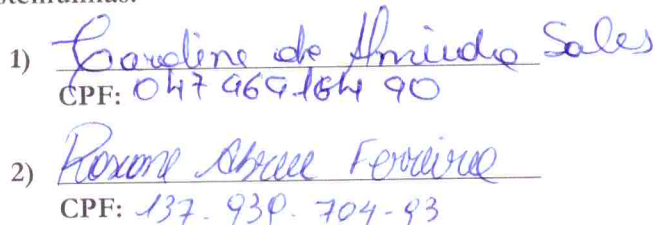 1) Caroline de Almeida Sales
CPF: 047 969 164 90
2) Roxane Abreu Ferreira
CPF: 137.939.704-93